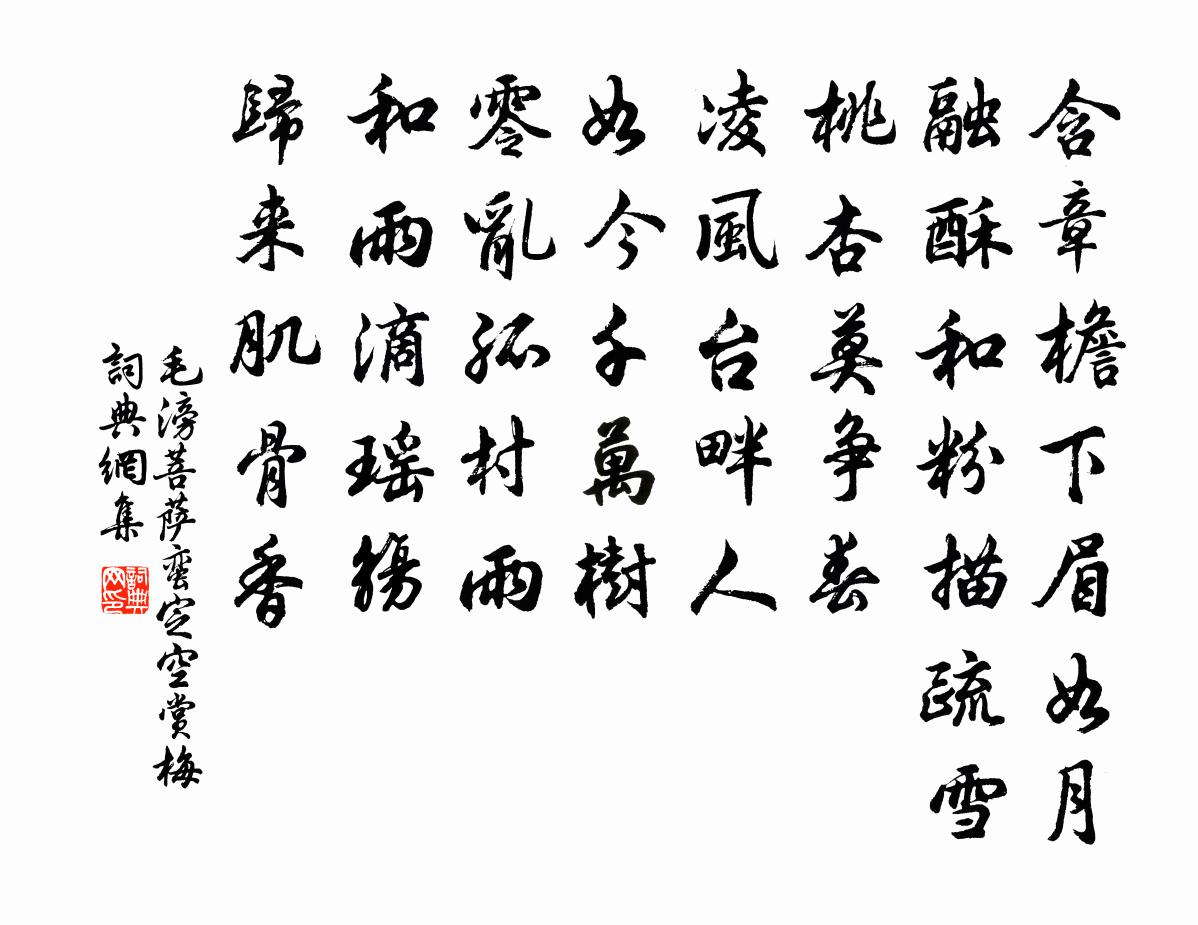 含章檐下眉如月
融酥和粉描疏雪
桃杏莫爭春
凌風台畔人
如今千萬樹
零亂孤村雨
和雨滴瑶觴
歸来肌骨香
毛滂菩萨蛮定空赏梅
詞典網集
詞典网印